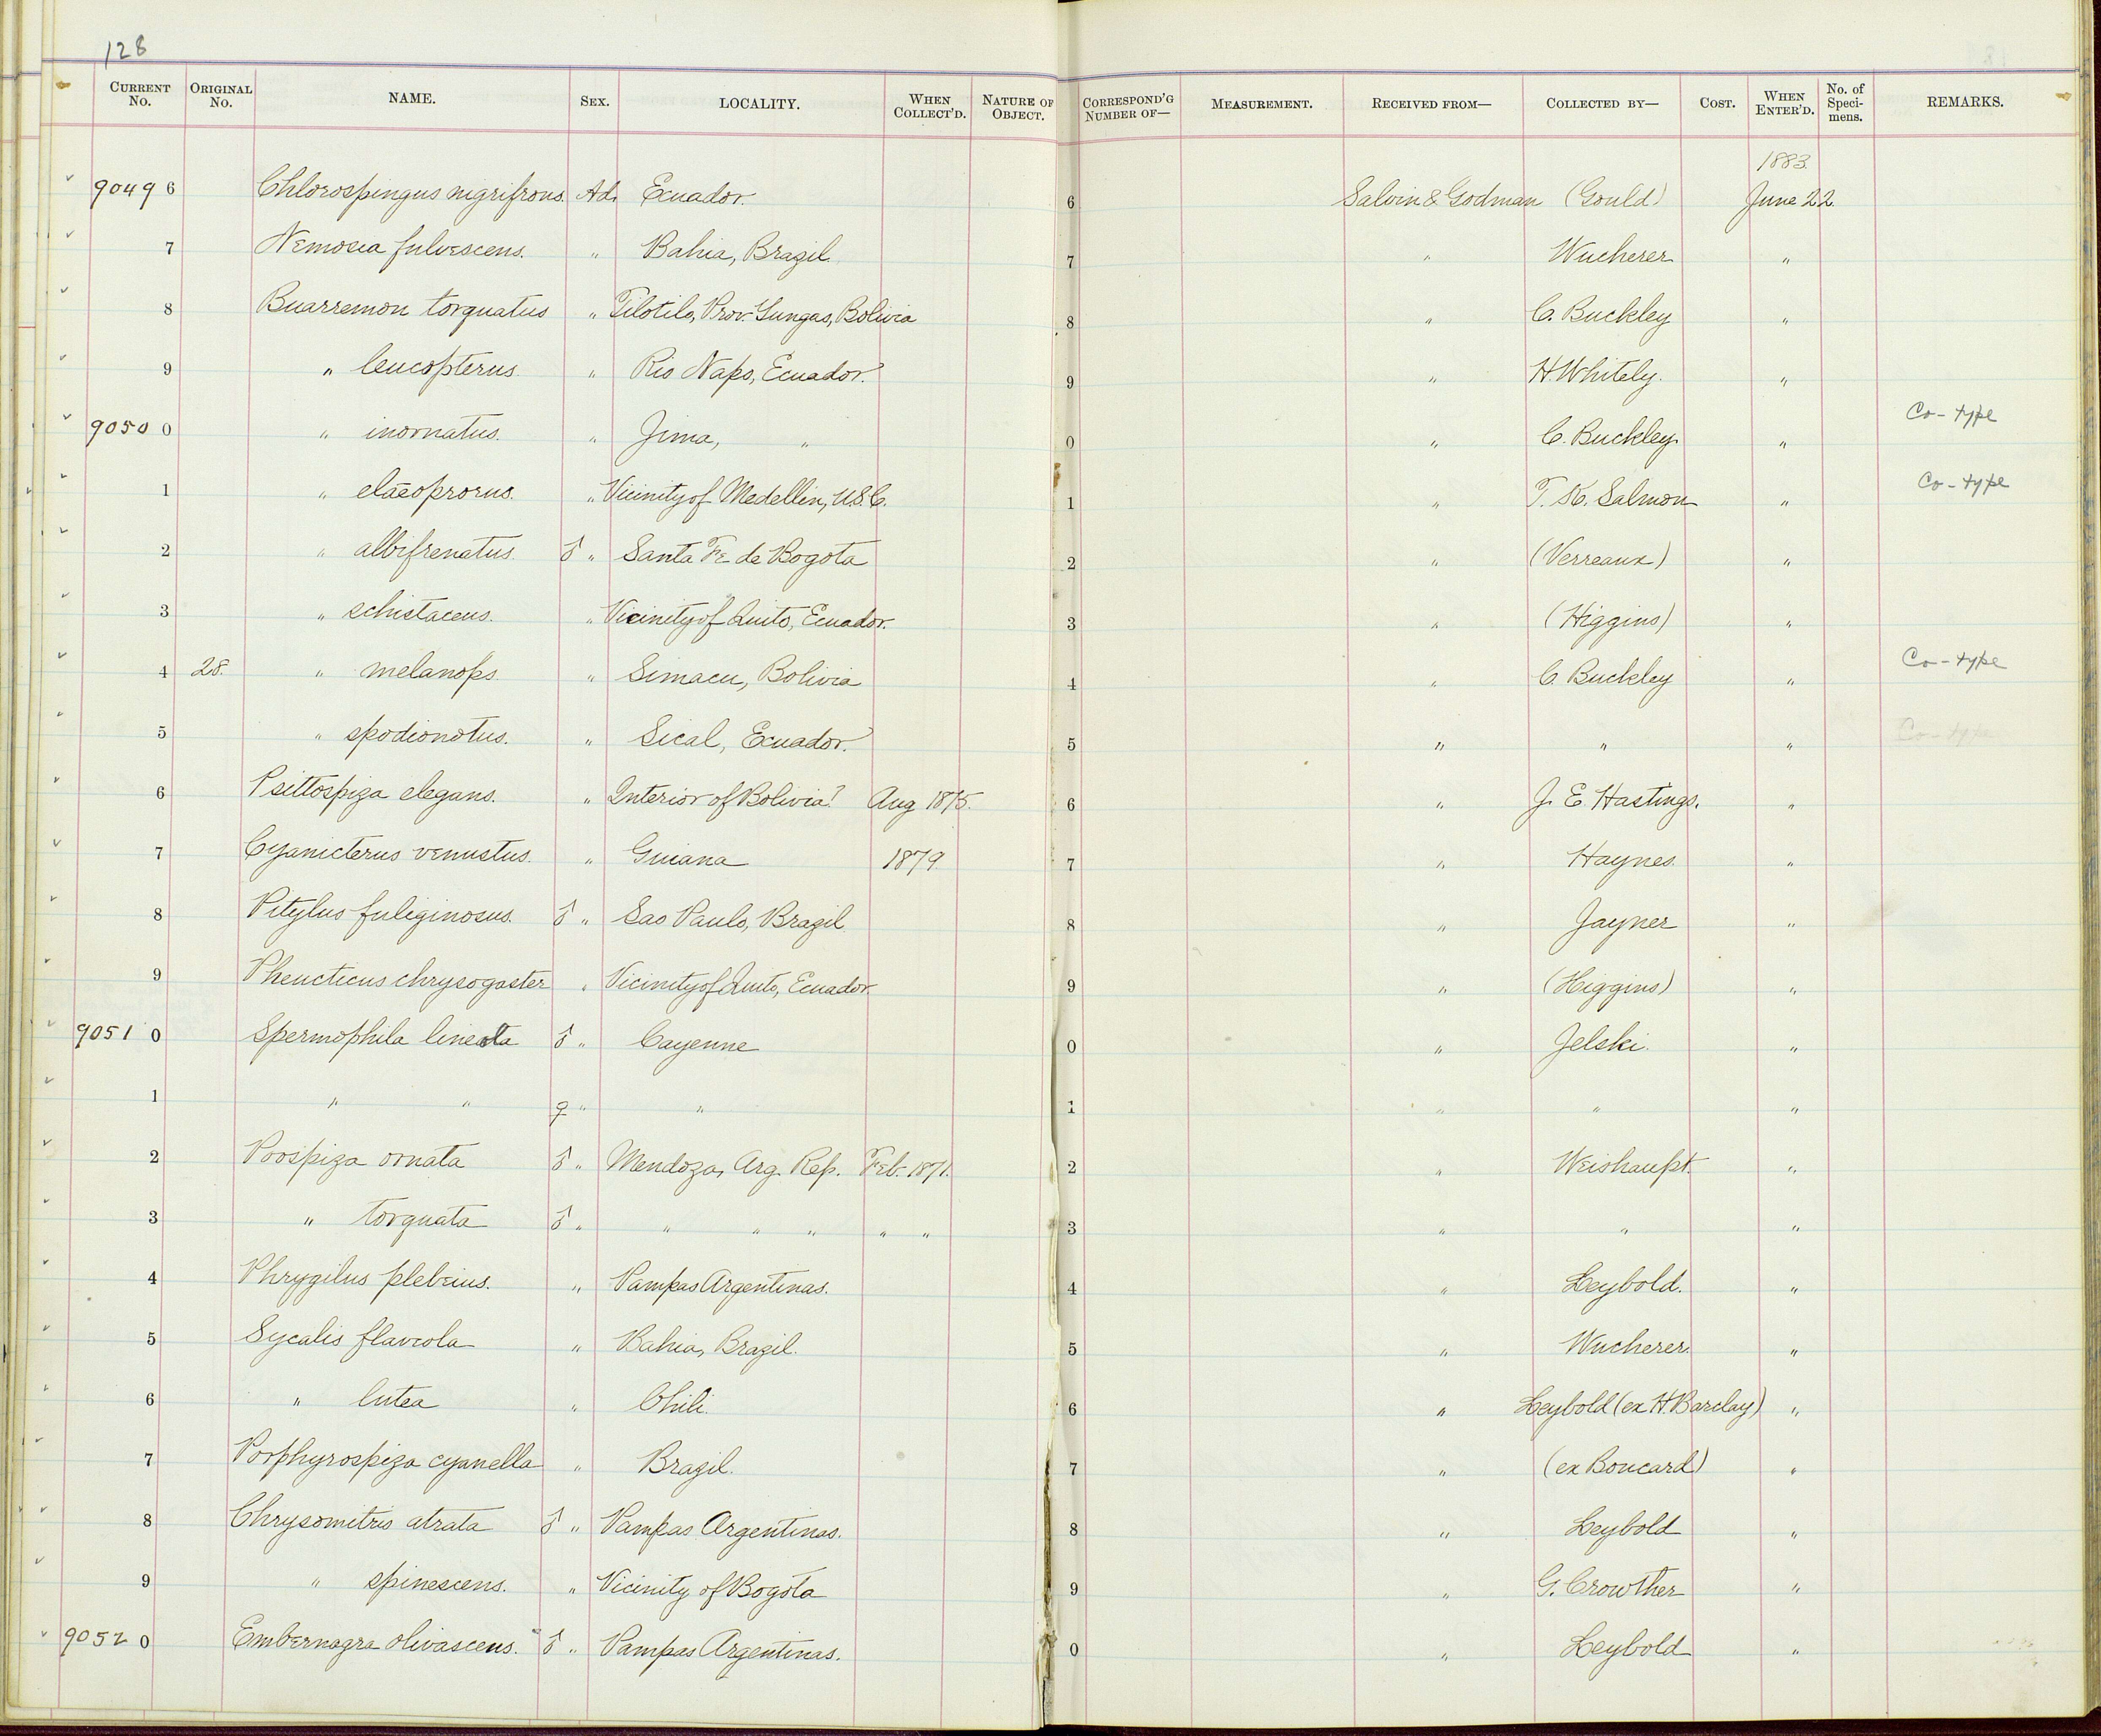 128
CURRENT No. ORIGINAL No. NAME. SEX. LOCALITY. WHEN COLLECT'D. NATURE OF OBJECT. CORRESPOND'G NUMBER OF— MEASUREMENT. RECEIVED FROM— COLLECTED BY— COST. WHEN ENTER'D. No. of Speci- mens. REMARKS.
1883.
9049 6 Chlorospingus nigrifrons. Ad. Ecuador. 6 Salvin & Godman (Gould) June 22
7 Nemosia fulvescens. " Bahia, Brazil. 7 " Wucherer "
8 Buarremon torquatus " Tilotilo, Prov. Yungas, Bolivia 8 " C. Buckley "
9 " leucopterus. " Rio Napo, Ecuador. 9 " H. Whitely. "
9050 0 " inornatus. " Jima, " 0 " C. Buckley. " Co-type
1 " elaeoprorus. " Vicinity of Medellin, U.S.C. 1 " T. K. Salmon " Co-type
2 " albifrenatus. ♂ " Santa Fe de Bogota 2 " (Verreaux) "
3 " schistaceus. " Vicinity of Quito, Ecuador. 3 " (Higgins) "
4 28. " melanops " Simacu, Bolivia 4 " C. Buckley " Co-type
5 " spodionotus. " Sical, Ecuador. 5 " " " Co-type
6 Psittospiza elegans. " Interior of Bolivia? Aug 1875. 6 " J. E. Hastings. "
7 Cyanicterus venustus. " Guiana 1879 7 " Haynes. "
8 Pitylus fuliginosus. ♂ " Sao Paulo, Brazil 8 " Jayner "
9 Pheucticus chrysogaster " Vicinity of Quito, Ecuador. 9 " (Higgins) "
9051 0 Spermophila lineata ♂ " Cayenne 0 " Jelski. "
1 " " ♀ " " 1 " " "
2 Poospiza ornata ♂ " Mendoza, Arg. Rep. Feb. 1871. 2 " Weishaupt. "
3 " torquata ♂ " " " " " " 3 " " "
4 Phrygilus plebeius. " Pampas Argentinas. 4 " Leybold. "
5 Sycalis flaveola " Bahia, Brazil. 5 " Wucherer. "
6 " lutea " Chili. 6 " Leybold (ex H. Barclay) "
7 Porphyrospiza cyanella " Brazil. 7 " (ex Boucard) "
8 Chrysomitris atrata ♂ " Pampas Argentinas. 8 " Leybold "
9 " spinescens. " Vicinity of Bogota 9 " G. Crowther "
9052 0 Embernagra olivascens. ♂ " Pampas Argentinas. 0 " Leybold "